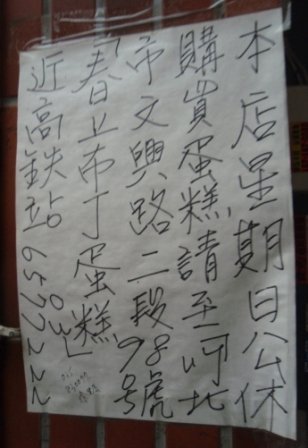 本店星期日公休
購買蛋糕請至竹北
市文興路二段98號
「春上布丁蛋糕」
近高鐵站 03 6577222